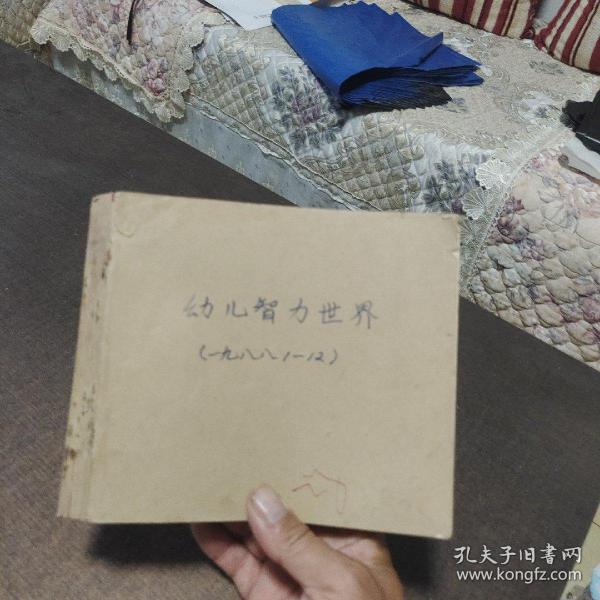 幼儿智力世界
(一九八八.1—12)
孔夫子旧書网
www.kongfz.com